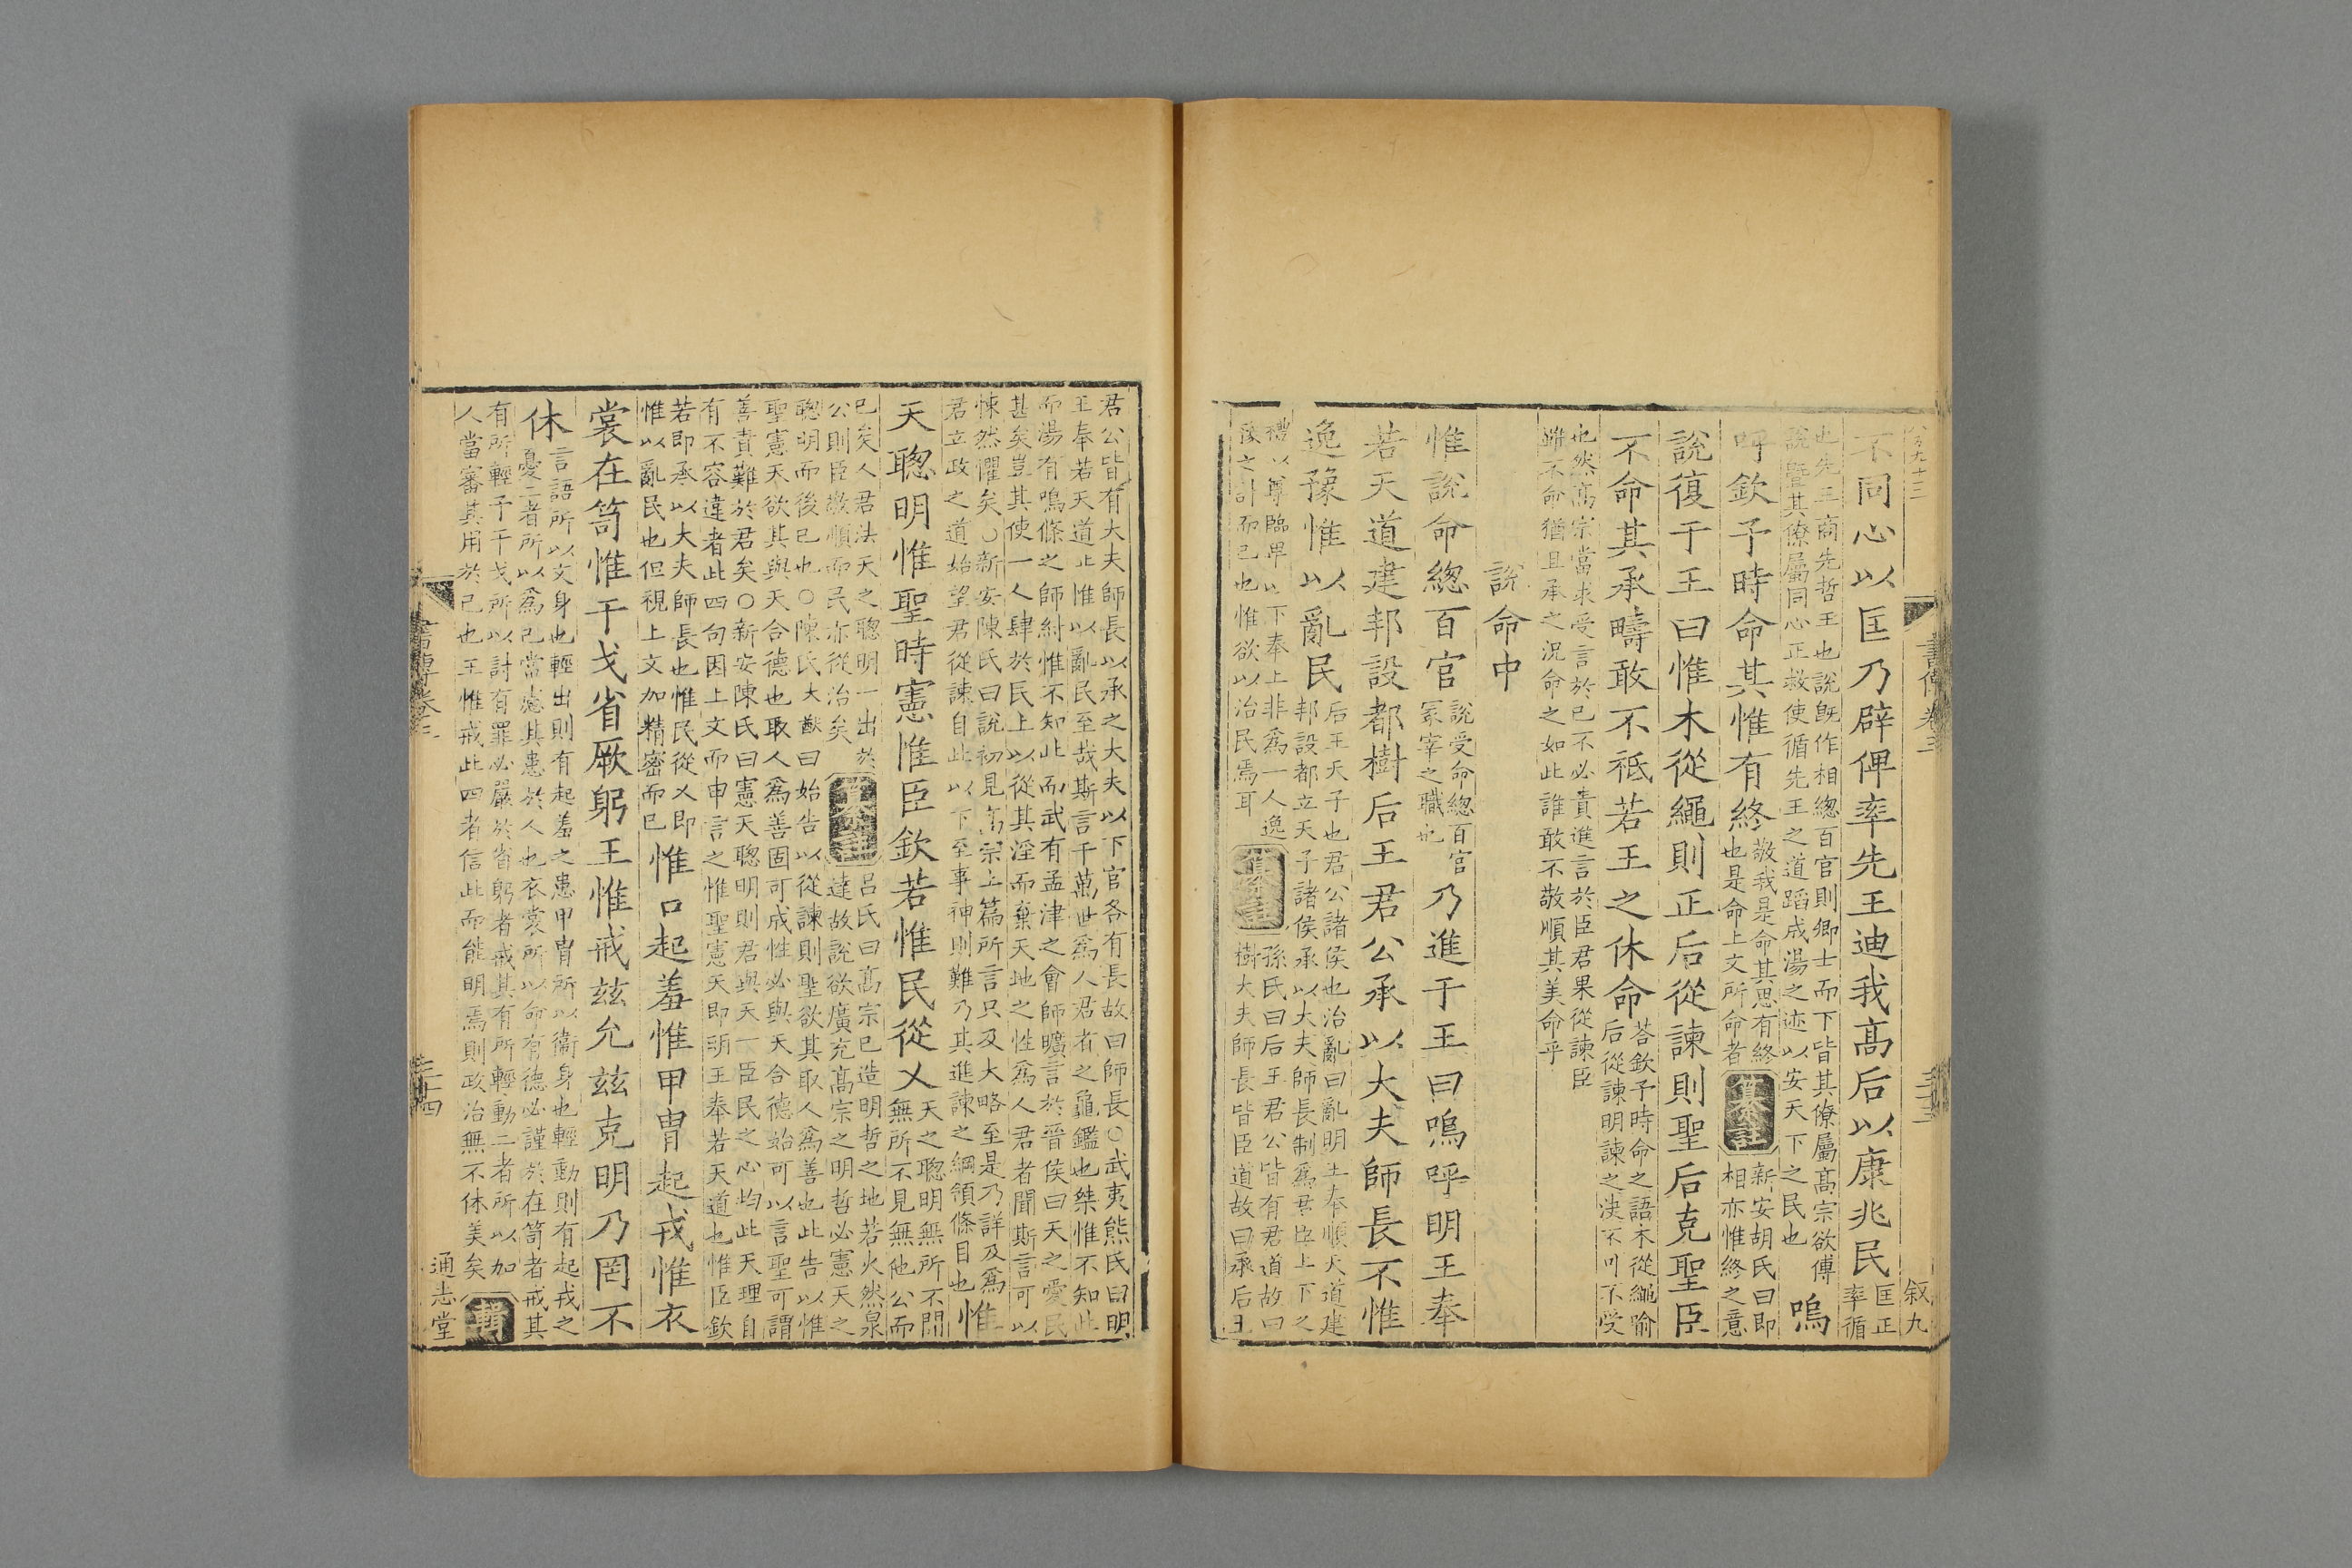 書傳卷三
三十三
叙九
不同心以匡乃辟俾率先王迪我髙后以康兆民
匡正
率循
也先王商先哲王也說旣作相總百官則卿士而下皆其僚屬髙宗欲傅
說曁其僚屬同心正救使循先王之道蹈成湯之迹以安天下之民也
嗚
呼欽予時命其惟有終
敬我是命其思有終
也是命上文所命者
纂註
新安胡氏曰即
相亦惟終之意
說復于王曰惟木從繩則正后從諫則聖后克聖臣
不命其承疇敢不祗若王之休命
荅欽予時命之語木從繩喻
后從諫明諫之决不可不受
也然髙宗當求受言於已不必責進言於臣君果從諫臣
雖不命猶且承之況命之如此誰敢不敬順其美命乎
說命中
惟說命總百官
說受命總百官
冢宰之職也
乃進于王曰嗚呼明王奉
若天道建邦設都樹后王君公承以大夫師長不惟
逸豫惟以亂民
后王天子也君公諸侯也治亂曰亂明王奉順天道建
邦設都立天子諸侯承以大夫師長制爲君臣上下之
禮以尊臨卑以下奉上非爲一人逸
豫之計而已也惟欲以治民焉耳
纂註
孫氏曰后王君公皆有君道故曰
樹大夫師長皆臣道故曰承后王
君公皆有大夫師長以承之大夫以下官各有長故曰師長○武夷熊氏曰明
王奉若天道止惟以亂民至哉斯言千萬世爲人君者之龜鑑也桀惟不知此
而湯有鳴條之師紂惟不知此而武有孟津之會師曠言於晉侯曰天之愛民
甚矣豈其使一人肆於民上以從其淫而棄天地之性爲人君者聞斯言可以
悚然懼矣○新安陳氏曰說初見髙宗上篇所言只及大略至是乃詳及爲
君立政之道始望君從諫自此以下至事神則難乃其進諫之綱領條目也
惟
天聰明惟聖時憲惟臣欽若惟民從乂
天之聰明無所不聞
無所不見無他公而
已矣人君法天之聰明一出於
公則臣敬順而民亦從治矣
纂註
呂氏曰髙宗已造明哲之地若火然泉
達故說欲廣充髙宗之明哲必憲天之
聰明而後已也○陳氏大猷曰始告以從諫則聖欲其取人爲善也此告以惟
聖憲天欲其與天合德也取人爲善固可成性必與天合德始可以言聖可謂
善責難於君矣○新安陳氏曰憲天聰明則君與天一臣民之心均此天理自
有不容違者此四句因上文而申言之惟聖憲天即頭王奉若天道也惟臣欽
若即承以大夫師長也惟民從乂即
惟以亂民也但視上文加精密而已
惟口起羞惟甲胄起戎惟衣
裳在笥惟干戈省厥躬王惟戒兹允兹克明乃罔不
休
言語所以文身也輕出則有起羞之患甲胄所以衞身也輕動則有起戎之
憂二者所以爲已當慮其患於人也衣裳所以命有德必謹於在笥者戒其
有所輕予干戈所以討有罪必嚴於省躬者戒其有所輕動二者所以加
人當審其用於已也王惟戒此四者信此而能明焉則政治無不休美矣
輯
書傳卷三
三十四
通志堂